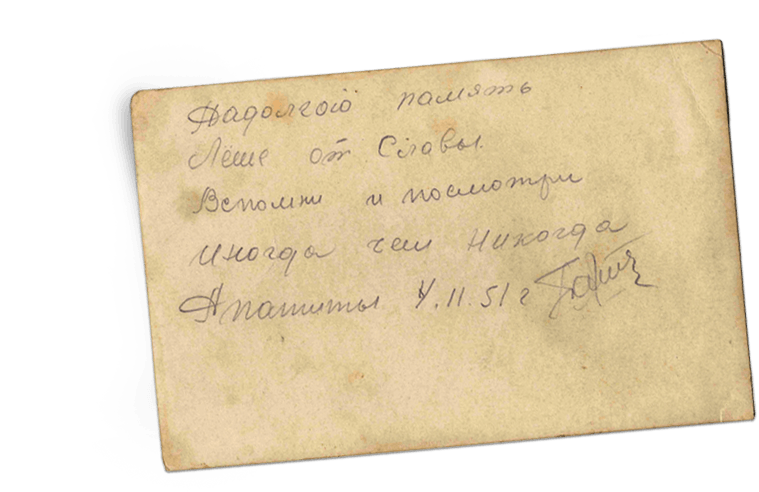 Надолгою память
Лёше от Славы.
Вспомни и посмотри
иногда чем никогда
Апатиты 4.11.51 г